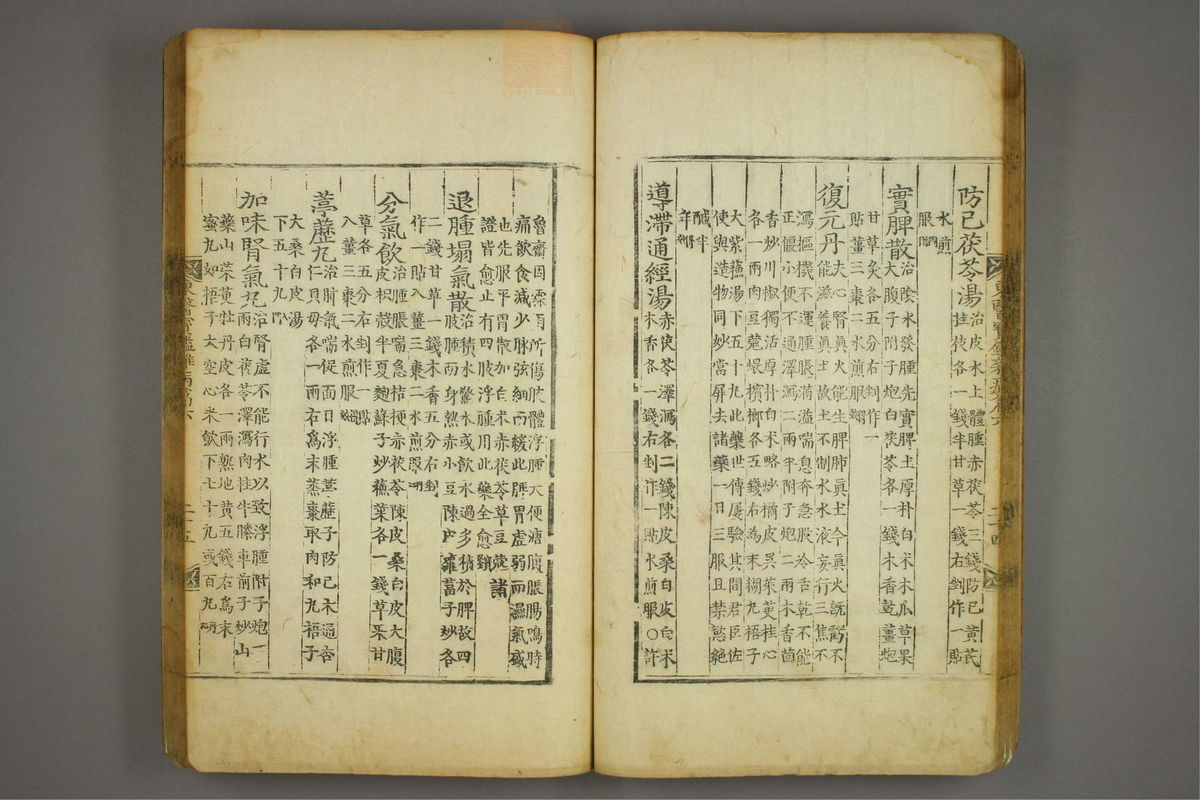 防已茯苓湯治皮水上體腫赤茯苓三錢防已黃芪
桂枝各一錢半甘草一錢右剉作一貼
水煎
服
實脾散治陰水發腫先實脾土厚朴白朮木瓜草果
大腹子附子炮白茯苓各一錢木香乾薑炮
甘草灸各五分右剉作一
貼薑三棗二水煎服
復元丹夫心腎眞火能生脾肺眞土今眞火旣虧不
能滋養眞土故土不制水水液妄行三焦不
瀉樞機不運腫脹滿溢喘息奔急股冷舌乾不能
正偃小便不通澤瀉二兩半附子炮二兩木香茴
香炒川椒獨活厚朴白朮略炒橘皮吳茱萸桂心
各一兩肉豆蔲煨檳榔各五錢右為末糊丸梧子
大紫蘇湯下五十丸此藥世傳屢驗其間君臣佐
使與造物同妙當屏去諸藥一日三服且禁慾絶
醎半
年
導滯通經湯赤茯苓澤瀉各二錢陳皮桑白皮白朮
木香各一錢右剉作一貼水煎服〇許
東醫寶鑑雜病篇六
二十四
魯齋因霖雨所傷肢體浮腫大便溏腹脹腸鳴時
痛飮食減少脉弦細而緩此脾胃虛弱而濕氣盛
也先服平胃散加白朮赤茯苓草豆蔲諸
證皆愈止有四肢浮腫用此藥全愈
退腫塌氣散治積水驚水或飮水過多積於脾故四
肢腫而身熱赤小豆陳皮蘿葍子炒各
二錢甘草一錢木香五分右剉
作一貼入薑三棗二水煎服
分氣飮治腫脹喘急桔梗赤茯苓陳皮桑白皮大腹
皮枳殼半夏麴蘇子炒蘇葉各一錢草果甘
草各五分右剉作一貼
入薑三棗二水煎服
葶藶丸治肺氣喘促面目浮腫葶藶子防已木通杏
仁貝母各一兩右爲末蒸棗取肉和丸梧子
大桑白皮湯
下五十丸
加味腎氣丸治腎虛不能行水以致浮腫附子炮一
兩白茯苓澤瀉肉桂牛膝車前子炒山
藥山茱萸牡丹皮各一兩熟地黃五錢右爲末
蜜丸如梧子大空心米飮下七十丸或百丸
東醫寶鑑雜病篇六
二十五